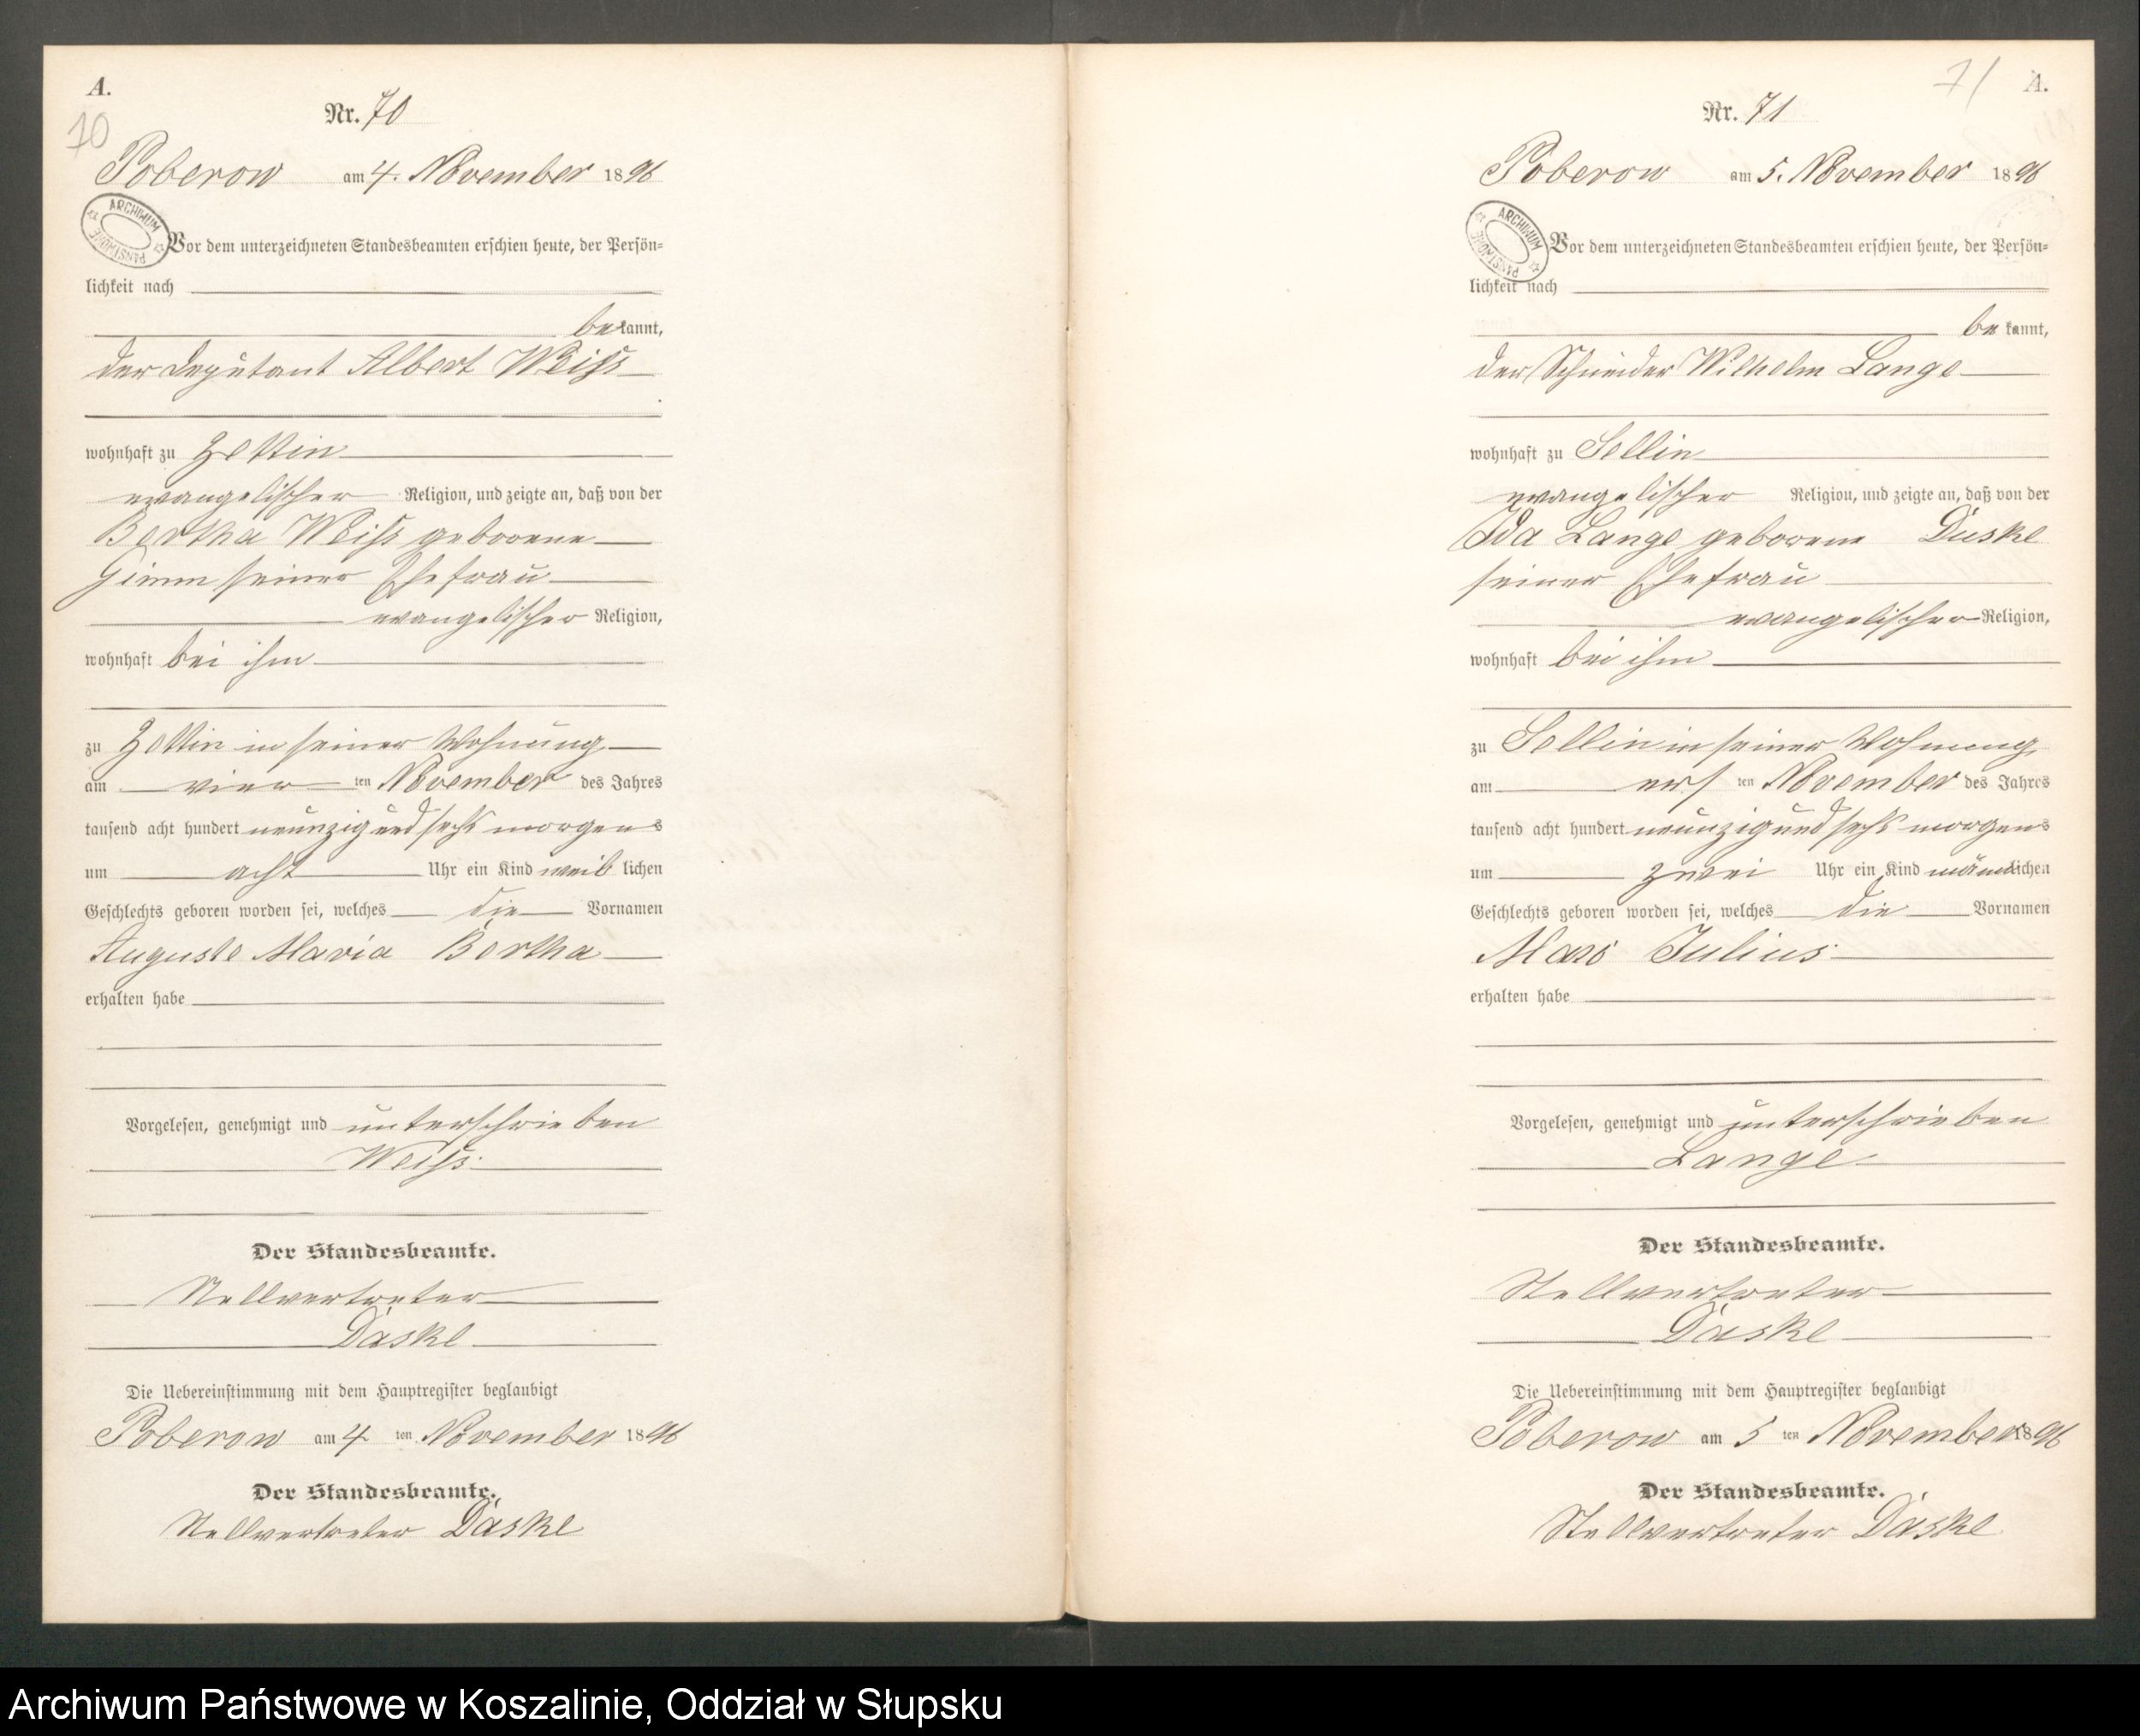 A.
70
Nr. 70
Poberow am 4. November 1896
ARCHIWUM PAŃSTWOWE
Vor dem unterzeichneten Standesbeamten erschien heute, der Persön-
lichkeit nach
be kannt,
der Deputant Albert Weiss
wohnhaft zu Zettin
evangelischer Religion, und zeigte an, daß von der
Bertha Weiss geborene
Gimm seiner Ehefrau
evangelischer Religion,
wohnhaft bei ihm
zu Zettin in seiner Wohnung
am vier ten November des Jahres
tausend acht hundert neunzig und sechs morgens
um acht Uhr ein Kind weib lichen
Geschlechts geboren worden sei, welches die Vornamen
Auguste Maria Bertha
erhalten habe
Vorgelesen, genehmigt und unterschrieben
Weiss.
Der Standesbeamte.
Stellvertreter
Daske
Die Uebereinstimmung mit dem Hauptregister beglaubigt
Poberow am 4 ten November 1896
Der Standesbeamte.
Stellvertreter Daske
71 A.
Nr. 71
Poberow am 5. November 1896
ARCHIWUM PAŃSTWOWE
Vor dem unterzeichneten Standesbeamten erschien heute, der Persön-
lichkeit nach
be kannt,
der Schneider Wilhelm Lange
wohnhaft zu Sellin
evangelischer Religion, und zeigte an, daß von der
Ida Lange geborene Duske
seiner Ehefrau
evangelischer Religion,
wohnhaft bei ihm
zu Sellin in seiner Wohnung
am ers ten November des Jahres
tausend acht hundert neunzig und sechs morgens
um zwei Uhr ein Kind männlichen
Geschlechts geboren worden sei, welches die Vornamen
Max Julius
erhalten habe
Vorgelesen, genehmigt und unterschrieben
Lange
Der Standesbeamte.
Stellvertreter
Daske
Die Uebereinstimmung mit dem Hauptregister beglaubigt
Poberow am 5 ten November 1896
Der Standesbeamte.
Stellvertreter Daske
Archiwum Państwowe w Koszalinie, Oddział w Słupsku